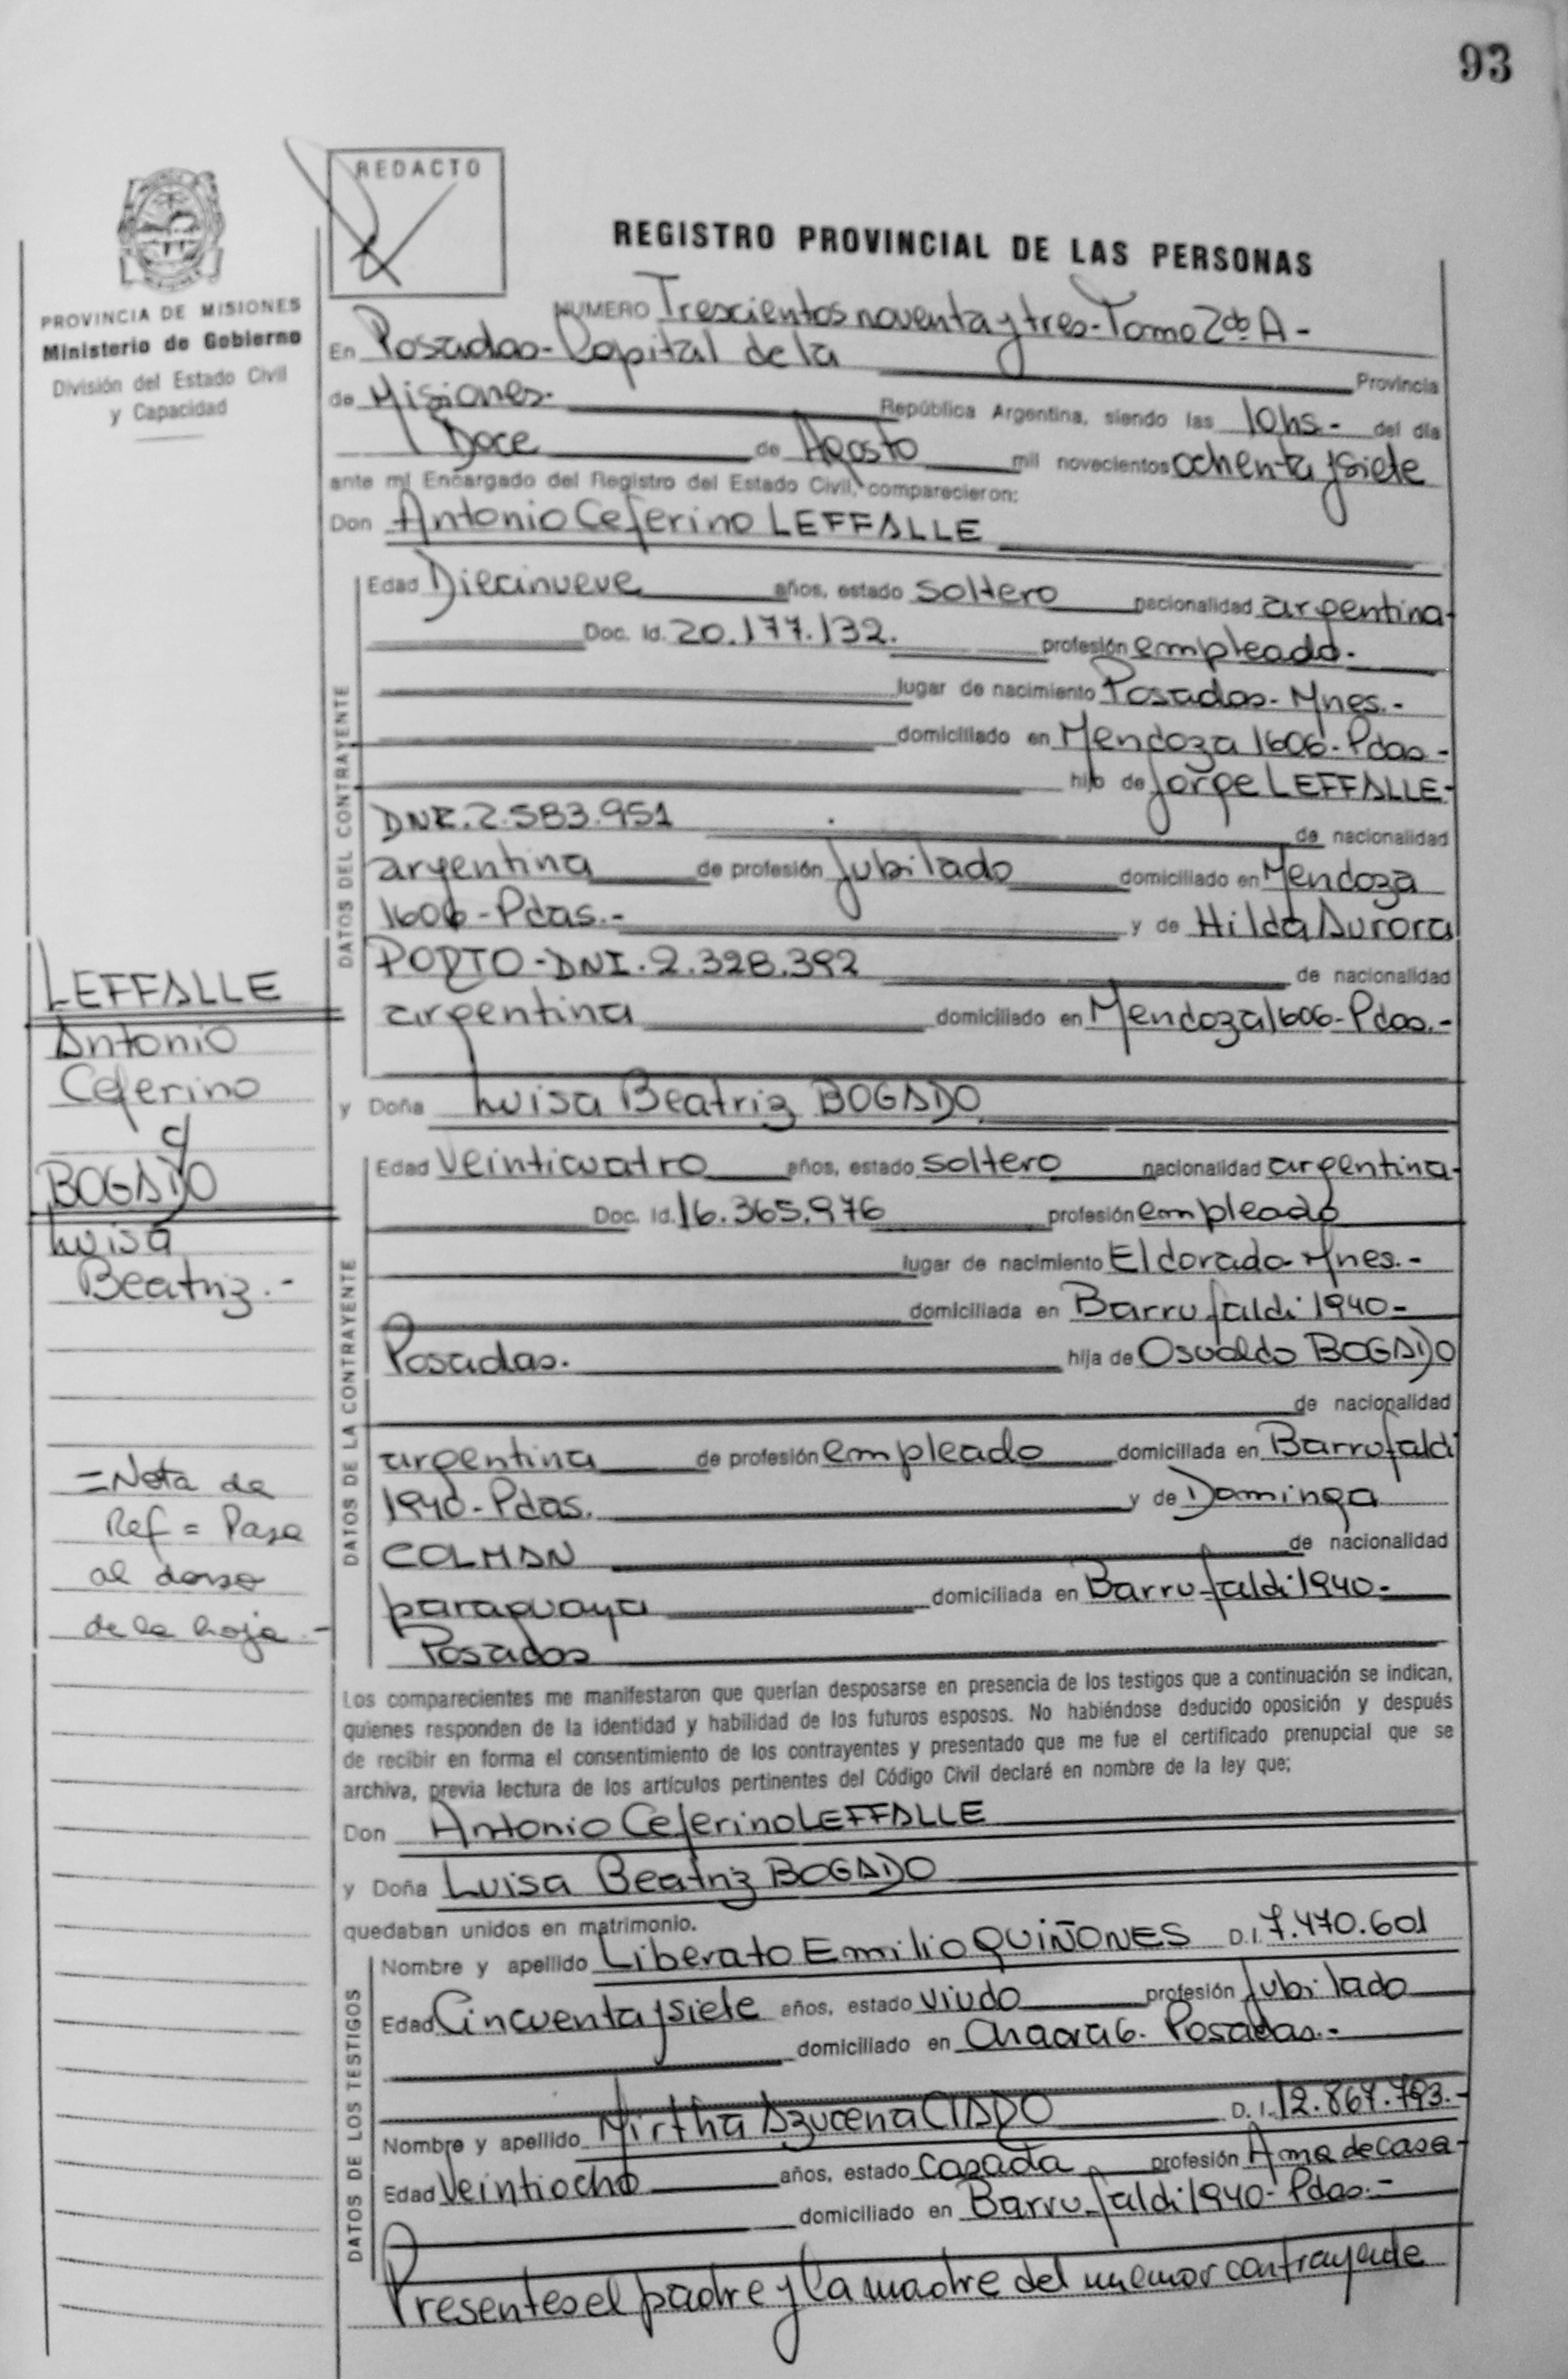 93
REDACTO
REGISTRO PROVINCIAL DE LAS PERSONAS
PROVINCIA DE MISIONES
Ministerio de Gobierno
División del Estado Civil
y Capacidad
NUMERO Trescientos noventa y tres - Tomo 2do A -
En Posadas - Capital de la Provincia
de Misiones. República Argentina, siendo las 10hs.- del día
Doce de Agosto mil novecientos ochenta y siete
ante mi Encargado del Registro del Estado Civil, comparecieron:
Don Antonio Ceferino LEFFALLE
DATOS DEL CONTRAYENTE
Edad Diecinueve años, estado soltero nacionalidad argentina-
Doc. Id. 20.177.132. profesión empleado.
lugar de nacimiento Posadas - Mnes.-
domiciliado en Mendoza 1606 - Pdas -
hijo de Jorge LEFFALLE-
DNI. 2.583.951 de nacionalidad
argentina de profesión Jubilado domiciliado en Mendoza
1606 - Pdas.- y de Hilda Aurora
PORTO - DNI. 2.328.392 de nacionalidad
argentina domiciliado en Mendoza 1606 - Pdas.-
y Doña Luisa Beatriz BOGADO
LEFFALLE
Antonio
Ceferino
y
BOGADO
Luisa
Beatriz.-
=Nota de
Ref = Pasa
al dorso
de la hoja.-
DATOS DE LA CONTRAYENTE
Edad Veinticuatro años, estado soltero nacionalidad argentina-
Doc. Id. 16.365.976 profesión empleado
lugar de nacimiento Eldorado - Mnes.-
domiciliada en Barrufaldi 1940 -
Posadas. hija de Osvaldo BOGADO
de nacionalidad
argentina de profesión empleado domiciliada en Barrufaldi
1940 - Pdas. y de Dominga
COLMAN de nacionalidad
paraguaya domiciliada en Barrufaldi 1940 -
Posadas
Los comparecientes me manifestaron que querían desposarse en presencia de los testigos que a continuación se indican,
quienes responden de la identidad y habilidad de los futuros esposos. No habiéndose deducido oposición y después
de recibir en forma el consentimiento de los contrayentes y presentado que me fue el certificado prenupcial que se
archiva, previa lectura de los artículos pertinentes del Código Civil declaré en nombre de la ley que;
Don Antonio Ceferino LEFFALLE
y Doña Luisa Beatriz BOGADO
quedaban unidos en matrimonio.
DATOS DE LOS TESTIGOS
Nombre y apellido Liberato Emilio QUIÑONES D.I. 7.470.601
Edad Cincuenta y siete años, estado viudo profesión Jubilado
domiciliado en Chacra 6. Posadas.-
Nombre y apellido Mirtha Azucena D.I. 12.867.793.-
Edad Veintiocho años, estado casada profesión Ama de casa-
domiciliado en Barrufaldi 1940 - Pdas.-
Presentes el padre y la madre del menor contrayente